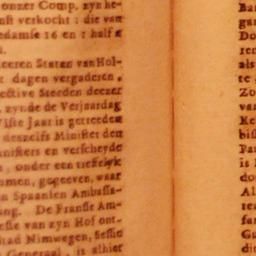 onzer Comp. zyn he-
nst verkocht : die van
edamse 16 en 1 half à
eeren Staten van Hol-
t dagen vergaderen,
ective Steeden deezer
, zynde de Verjaardag
Vlste Jaar is getreeden
deszelfs Minister den
nisters en verscheyde
, onder een treffelyk
umen, gegeeven, waar
n Spaansen Ambassa-
ang. De Franse Am-
esse van zyn Hof ont-
stad Nimwegen, Sessie
Generaal, is alhier
Ban
gan
Do
ren
als
te
Zo
van
Ke
bis
Pa
is
do
Al
tea
fan
Gu
die